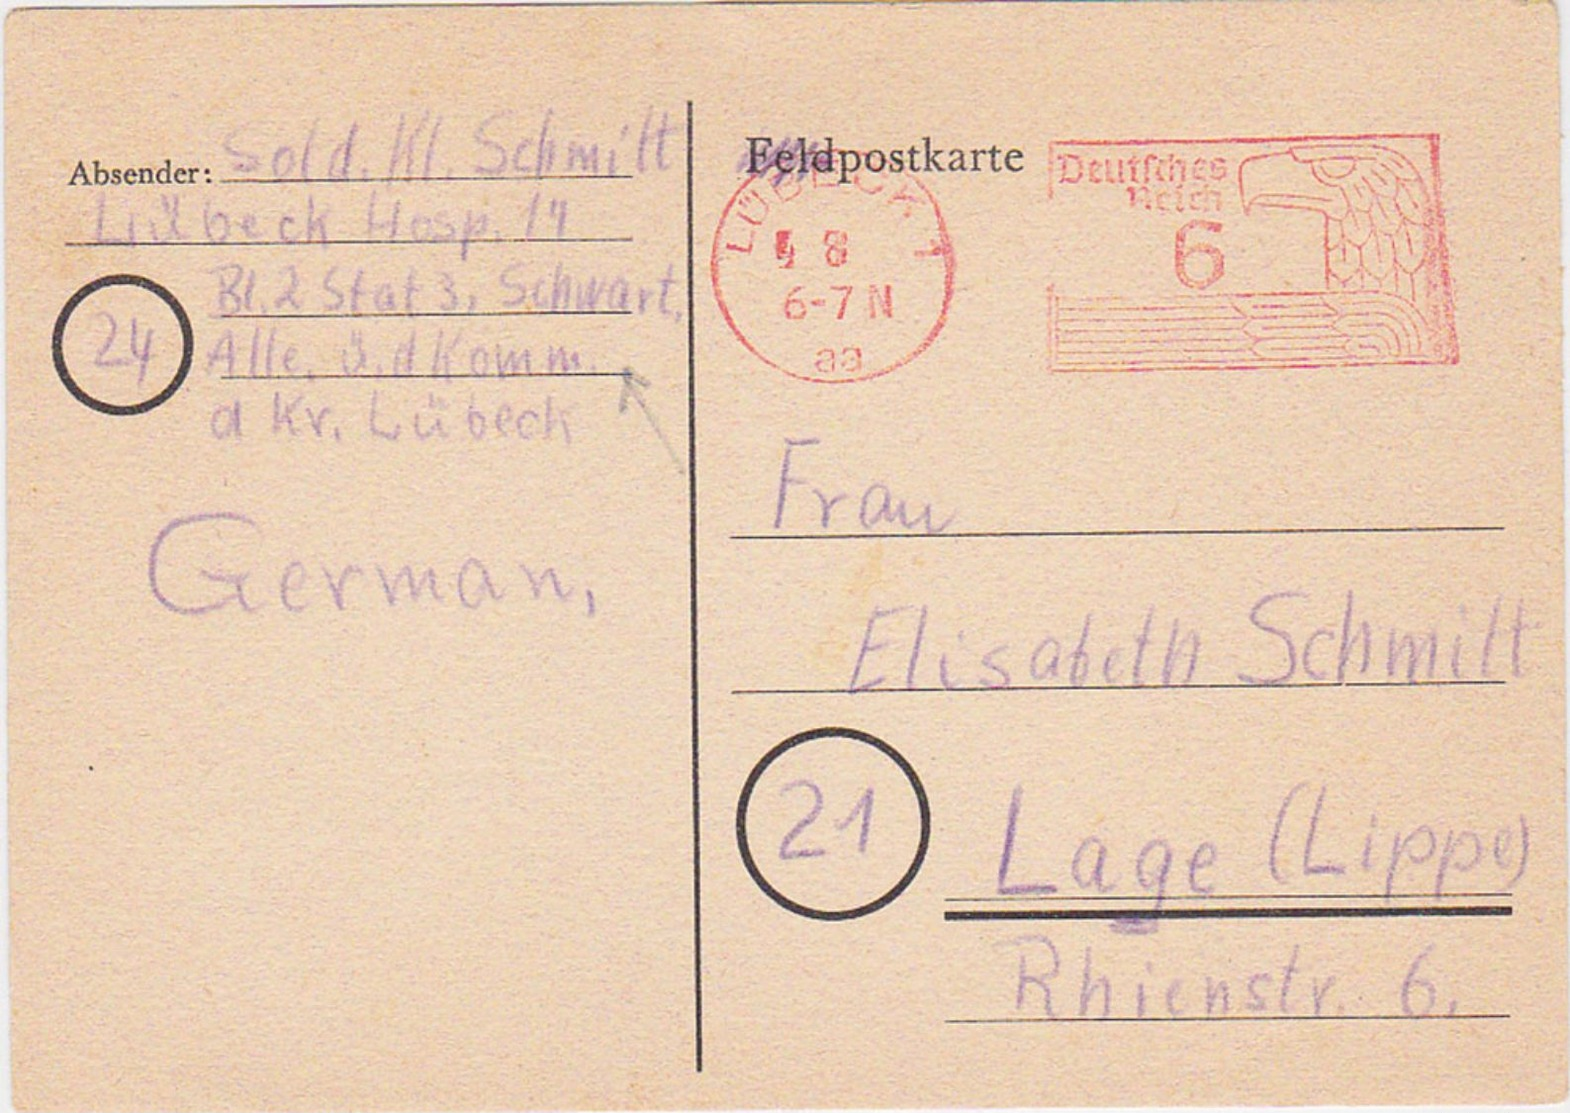 Absender: Sold. Kl. Schmitt
Lübeck Hosp. 14
Bl. 2 Stat 3, Schwart.
24
Alle. ü. d Komm.
d Kr. Lübeck
German,
Feldpostkarte
LÜBECK 1
8
6-7 N
aa
Deutsches
Reich
6
Frau
Elisabeth Schmitt
21
Lage (Lippe)
Rhienstr. 6.